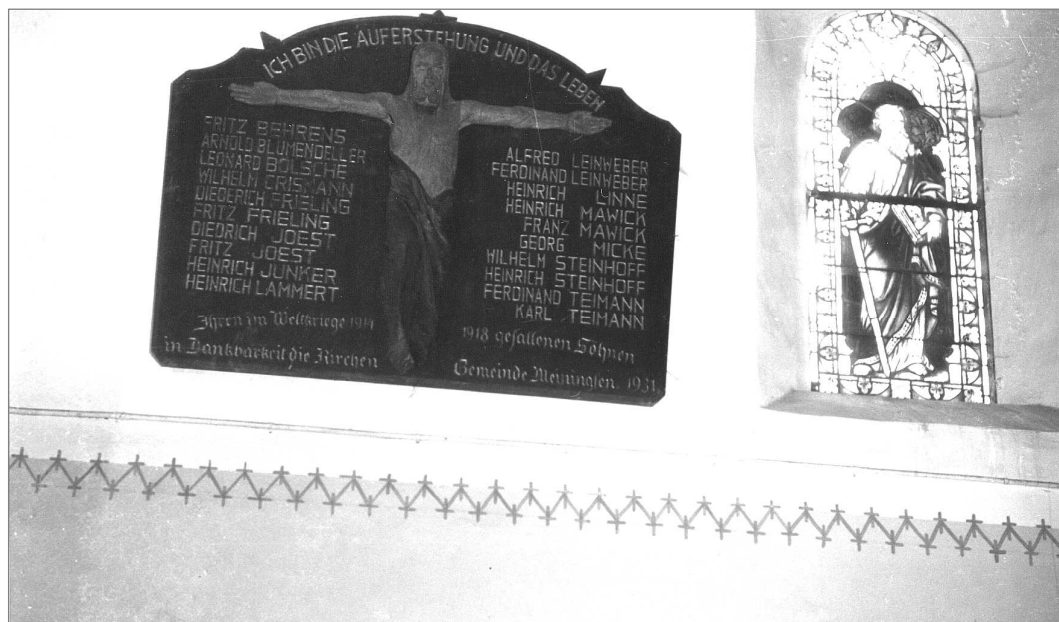 ICH BIN DIE AUFERSTEHUNG UND DAS LEBEN
FRITZ BEHRENS
ARNOLD BLUMENDELLER
LEONARD BÖLSCHE
WILHELM CRISMANN
DIEDERICH FRIELING
FRITZ FRIELING
DIEDRICH JOEST
FRITZ JOEST
HEINRICH JUNKER
HEINRICH LAMMERT
ALFRED LEINWEBER
FERDINAND LEINWEBER
HEINRICH LINNE
HEINRICH MAWICK
FRANZ MAWICK
GEORG MICKE
WILHELM STEINHOFF
HEINRICH STEINHOFF
FERDINAND TEIMANN
KARL TEIMANN
Ihren im Weltkriege 1914 1918 gefallenen Söhnen
in Dankbarkeit die Kirchen Gemeinde Meiningsen. 1931.